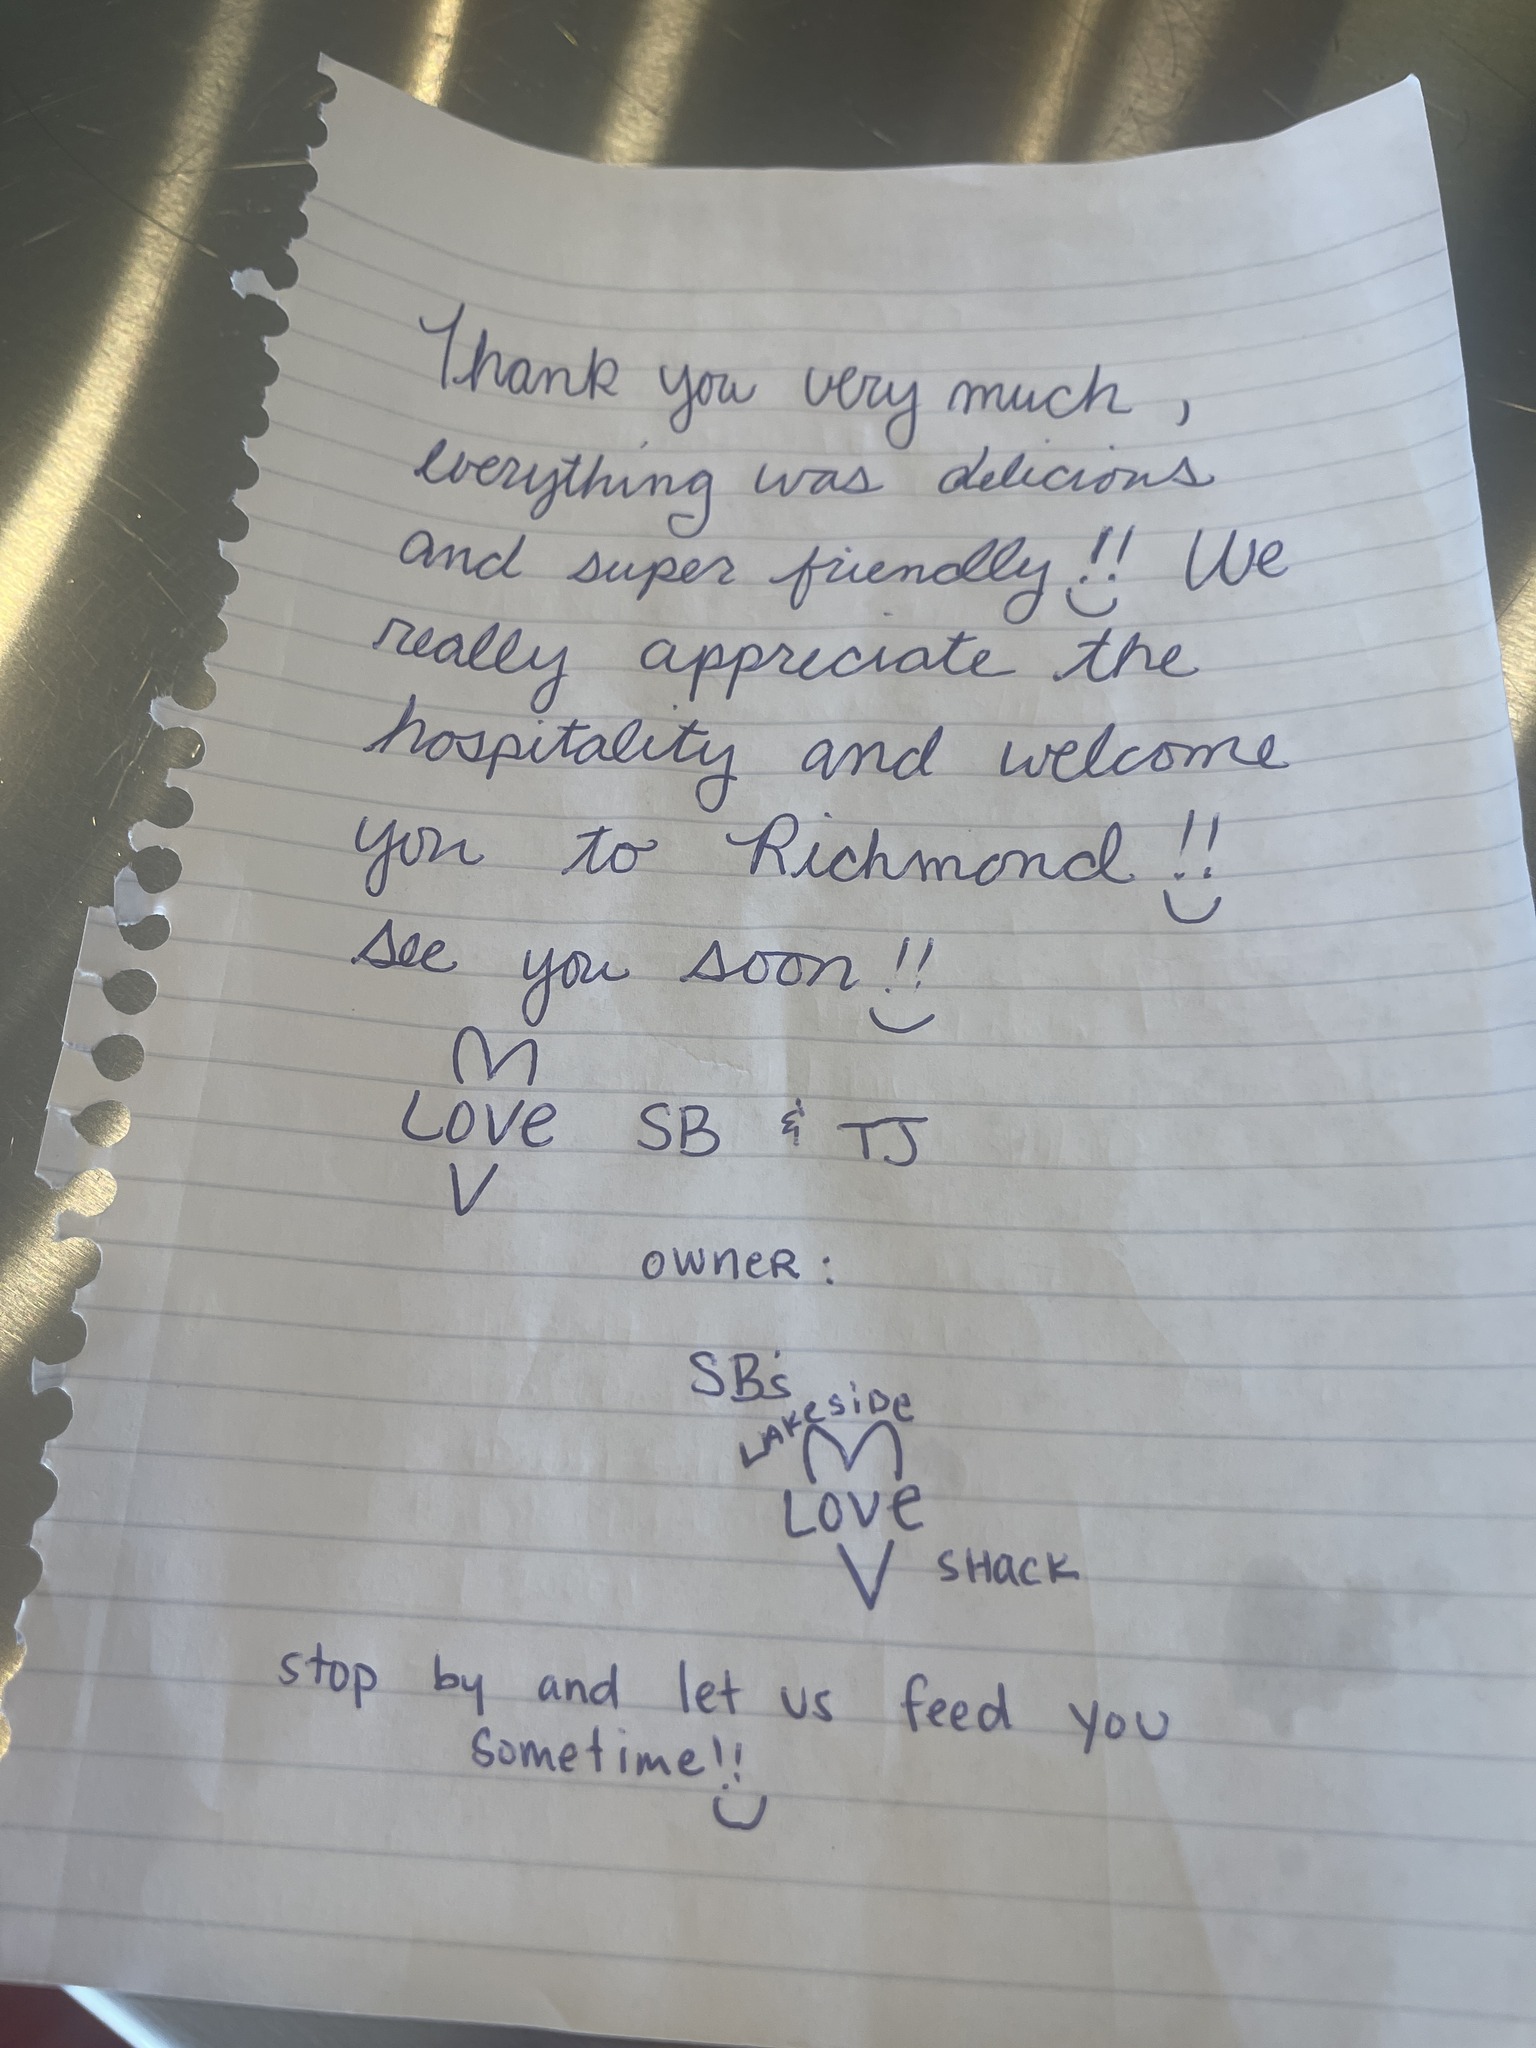 Thank you very much,
everything was delicious
and super friendly!! We
really appreciate the
hospitality and welcome
you to Richmond!!
see you soon!!
Love SB & TJ
owner:
SB's
Lakeside
Love
Shack
stop by and let us feed you
sometime!!